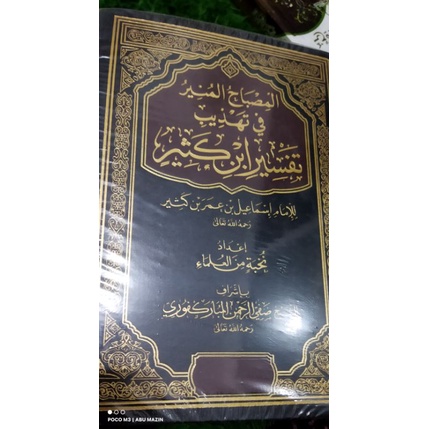 المصباح المنير
في تهذيب
تفسير ابن كثير
للإمام إسماعيل بن عمر بن كثير
رحمه الله تعالى
إعداد
نخبة من العلماء
بإشراف
صفي الرحمن المباركفوري
رحمه الله تعالى
POCO M3 | ABU MAZIN